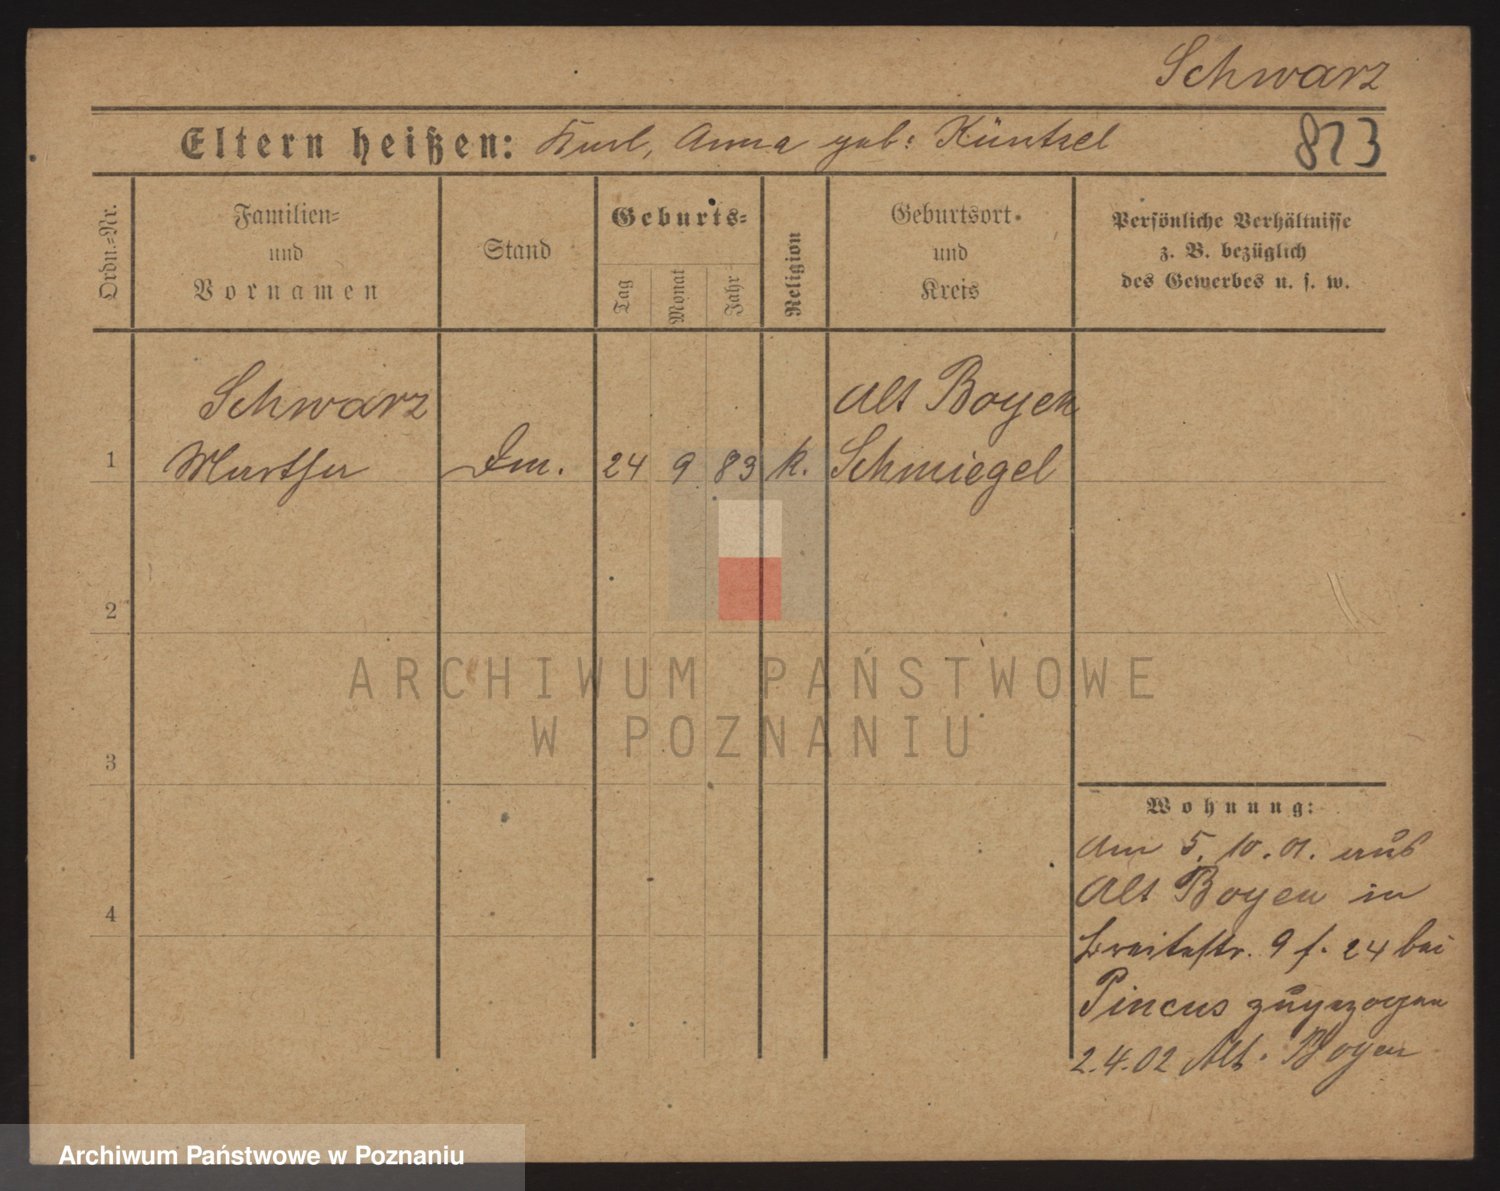 Schwarz
Eltern heißen: Karl, Anna geb: Küntzel
823
Ordn.=Nr.
Familien=
und
Vornamen
Stand
Geburts=
Tag
Monat
Jahr
Religion
Geburtsort
und
Kreis
Persönliche Verhältnisse
z. B. bezüglich
des Gewerbes u. s. w.
Schwarz
Alt Boyen
1 Martha Dm. 24 9 83 k. Schmiegel
2
ARCHIWUM PAŃSTWOWE
W POZNANIU
3
Wohnung:
Am 5. 10. 01. aus
Alt Boyen in
4
Breitestr. 9 f. 24 bei
Pincus zugezogen
2.4.02 Alt. Boyen
Archiwum Państwowe w Poznaniu